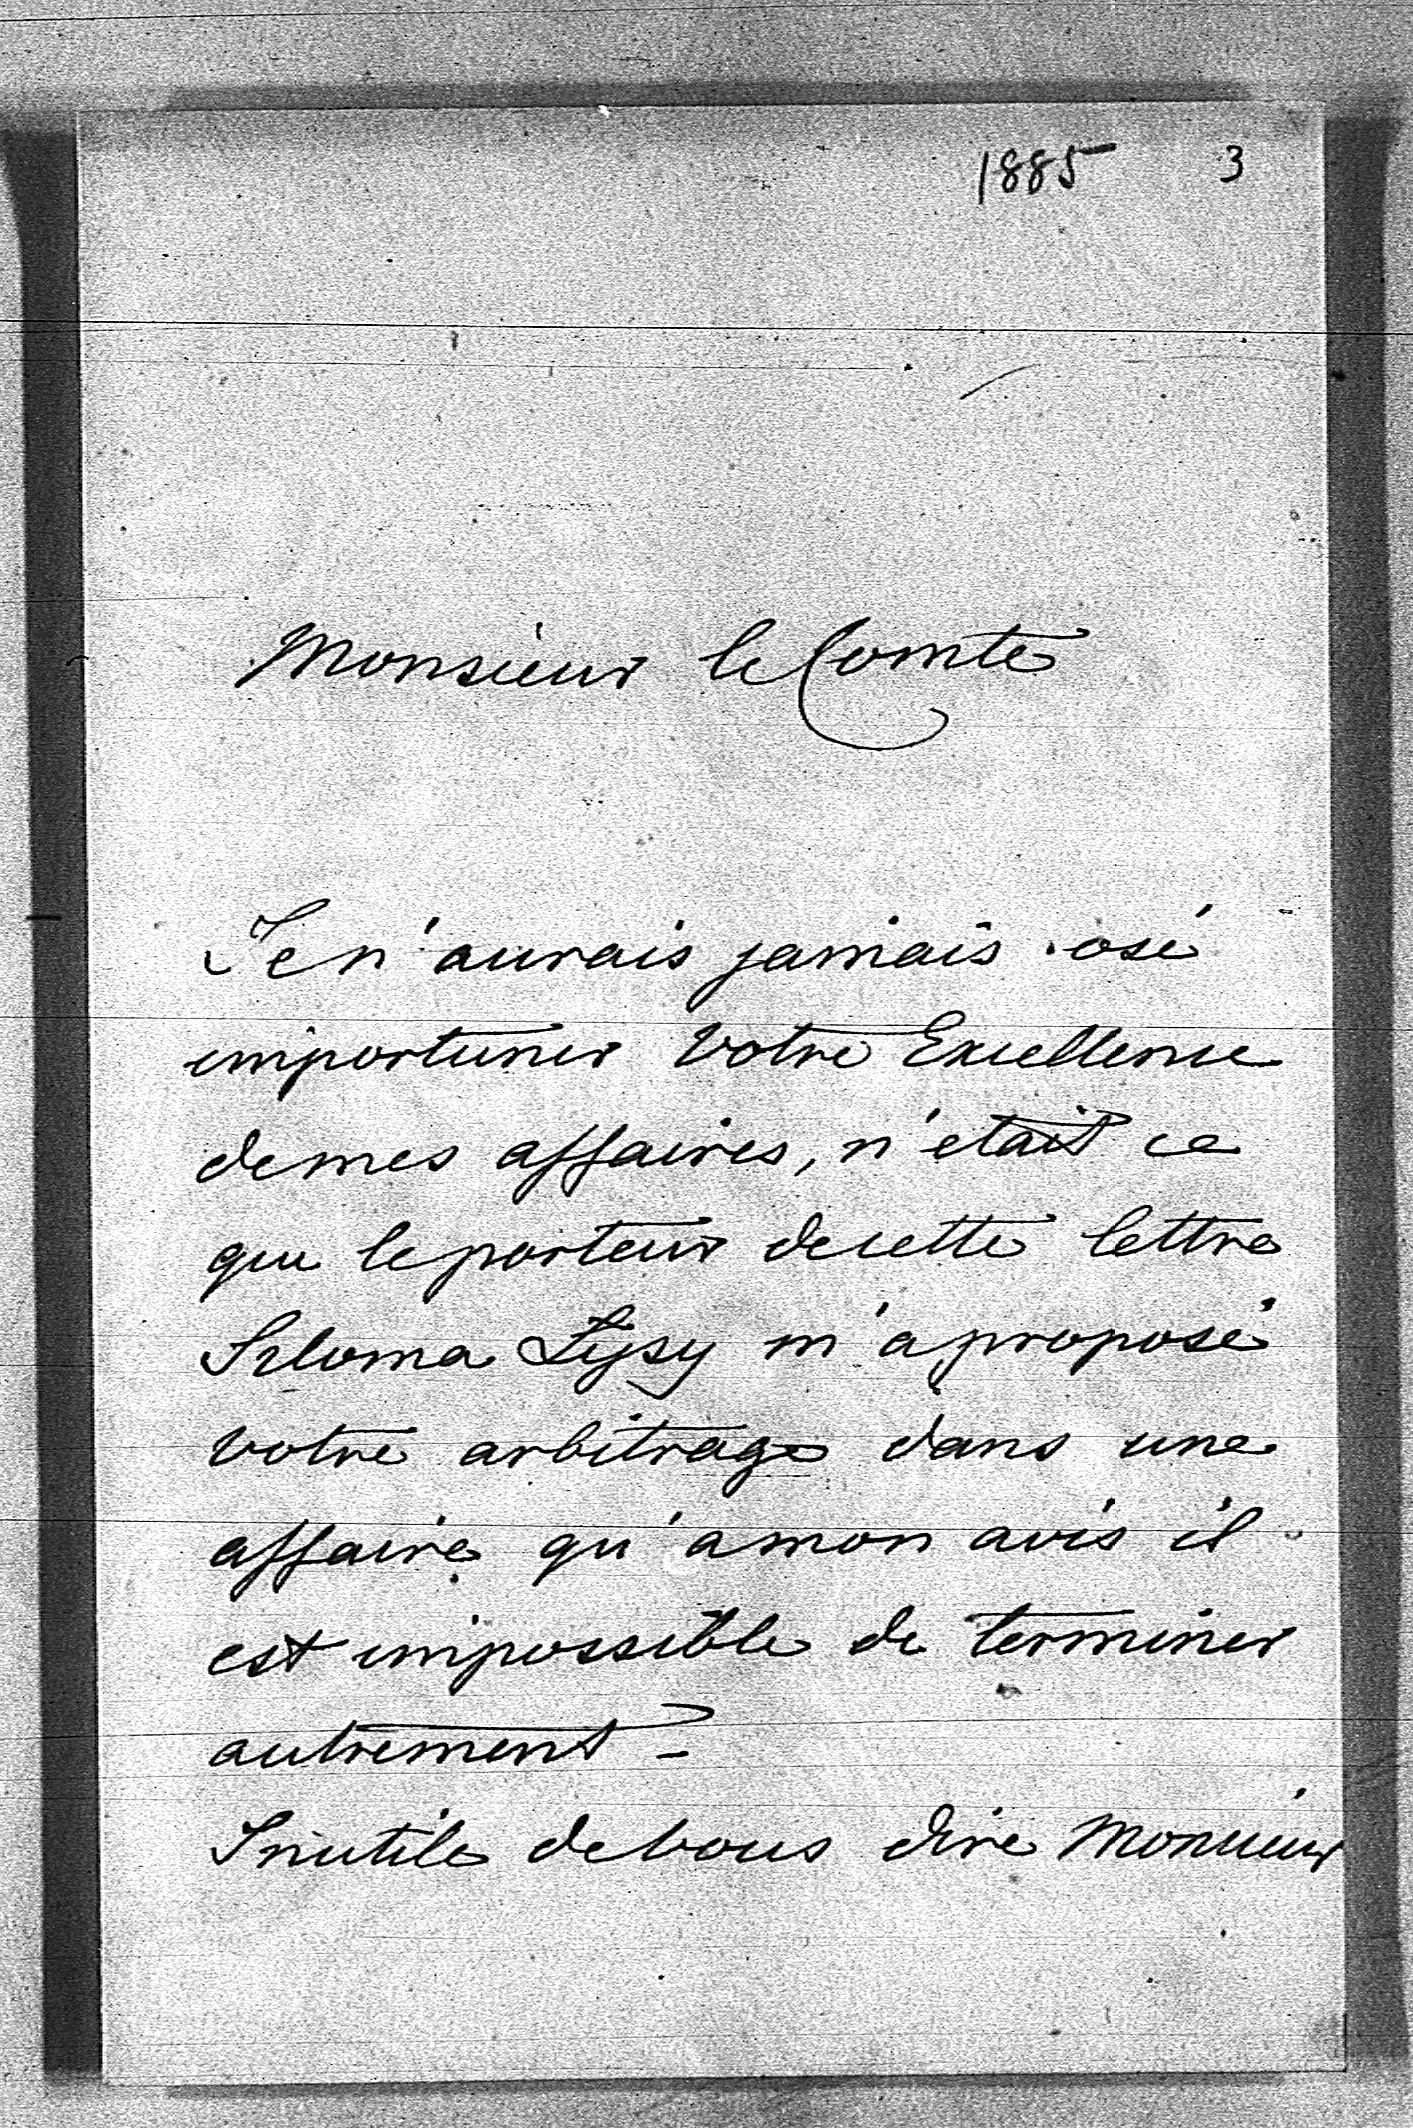 1885 3
Monsieur le Comte
Je n'aurais jamais osé
importuner Votre Excellence
de mes affaires, n'etait ce
que le porteur de cette lettre
Szloma Łysy m'a proposé
votre arbitrage dans une
affaire qu'a mon avis il
est impossible de terminer
autrement –
Inutile de vous dire Monsieur